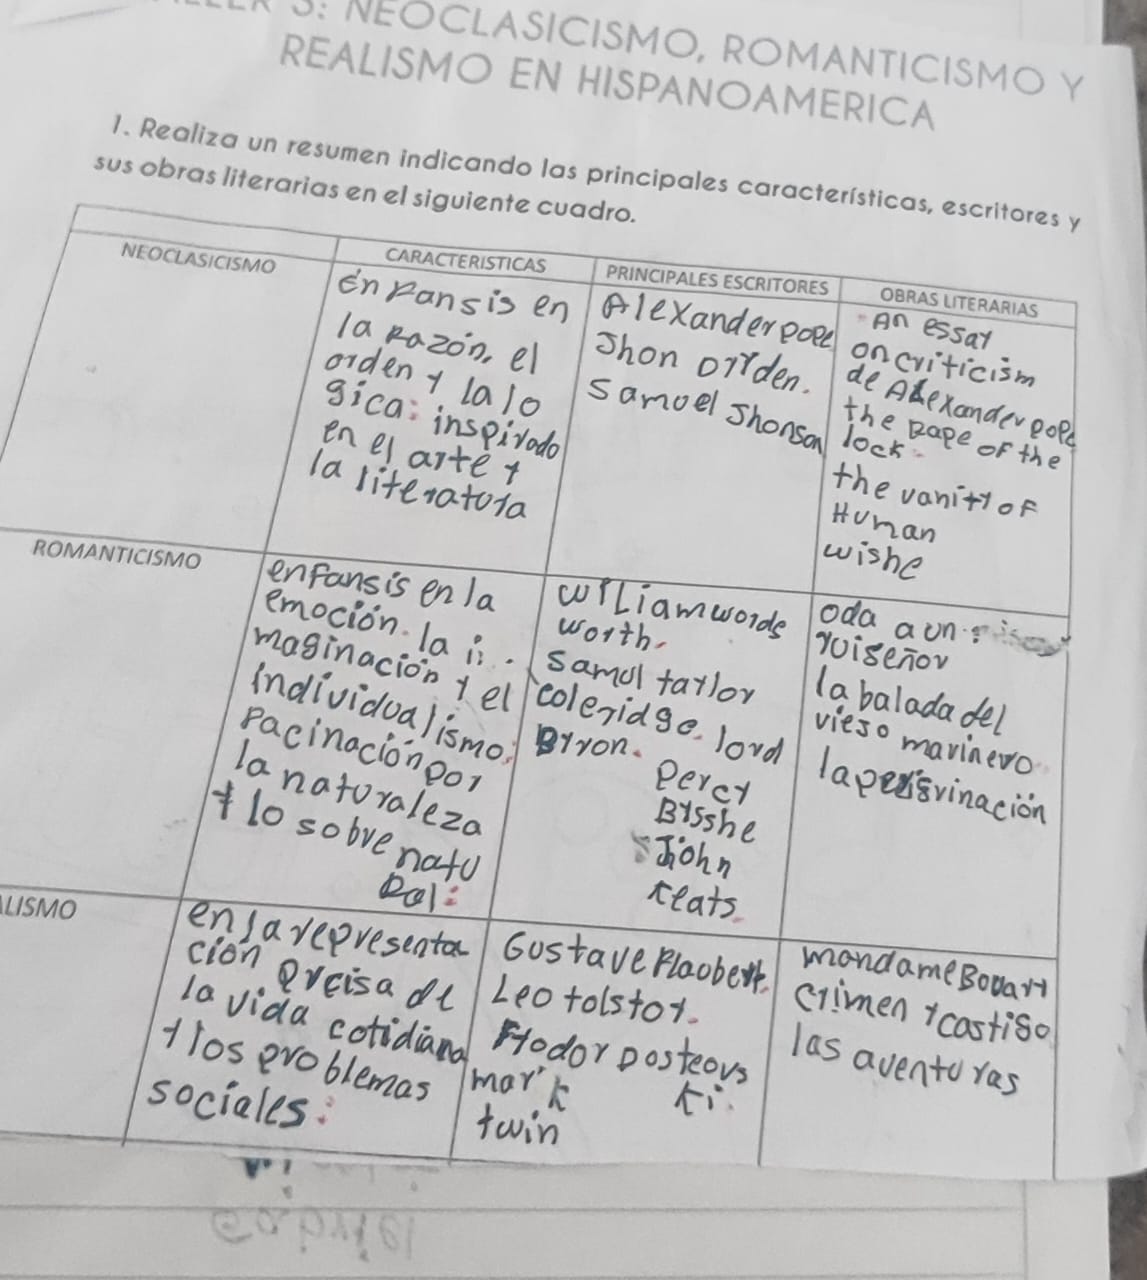 3: NEOCLASICISMO, ROMANTICISMO Y
REALISMO EN HISPANOAMERICA
1. Realiza un resumen indicando las principales características, escritores y
sus obras literarias en el siguiente cuadro.
NEOCLASICISMO
CARACTERISTICAS
PRINCIPALES ESCRITORES
OBRAS LITERARIAS
énfansis en
la Razón, el
orden y la lo
gica: inspirado
en el arte y
la literatura
Alexander pope
Jhon Dryden.
Samuel Jhonson
An essay
on criticism
de Alexander pope
the Rape of the
lock.
the vanity of
Human
wishe
ROMANTICISMO
enfansis en la
emoción. la i
maginación y el
individualismo;
Facinación por
la naturaleza
y lo sobre natu
Ral:
William words
worth.
Samul taylor
coleridge. lord
Byron.
Percy
Bysshe
John
keats.
oda a un
ruiseñor
la balada del
vieso marinero
la peregrinación
ALISMO
en la representa
ción precisa de
la vida cotidiana
y los problemas
sociales:
Gustave Flaobert.
Leo tolstoy.
Fyodor Dosteovs
ki.
mark
twin
mandame Bovary
crimen y castigo
las aventuras
Gabriel